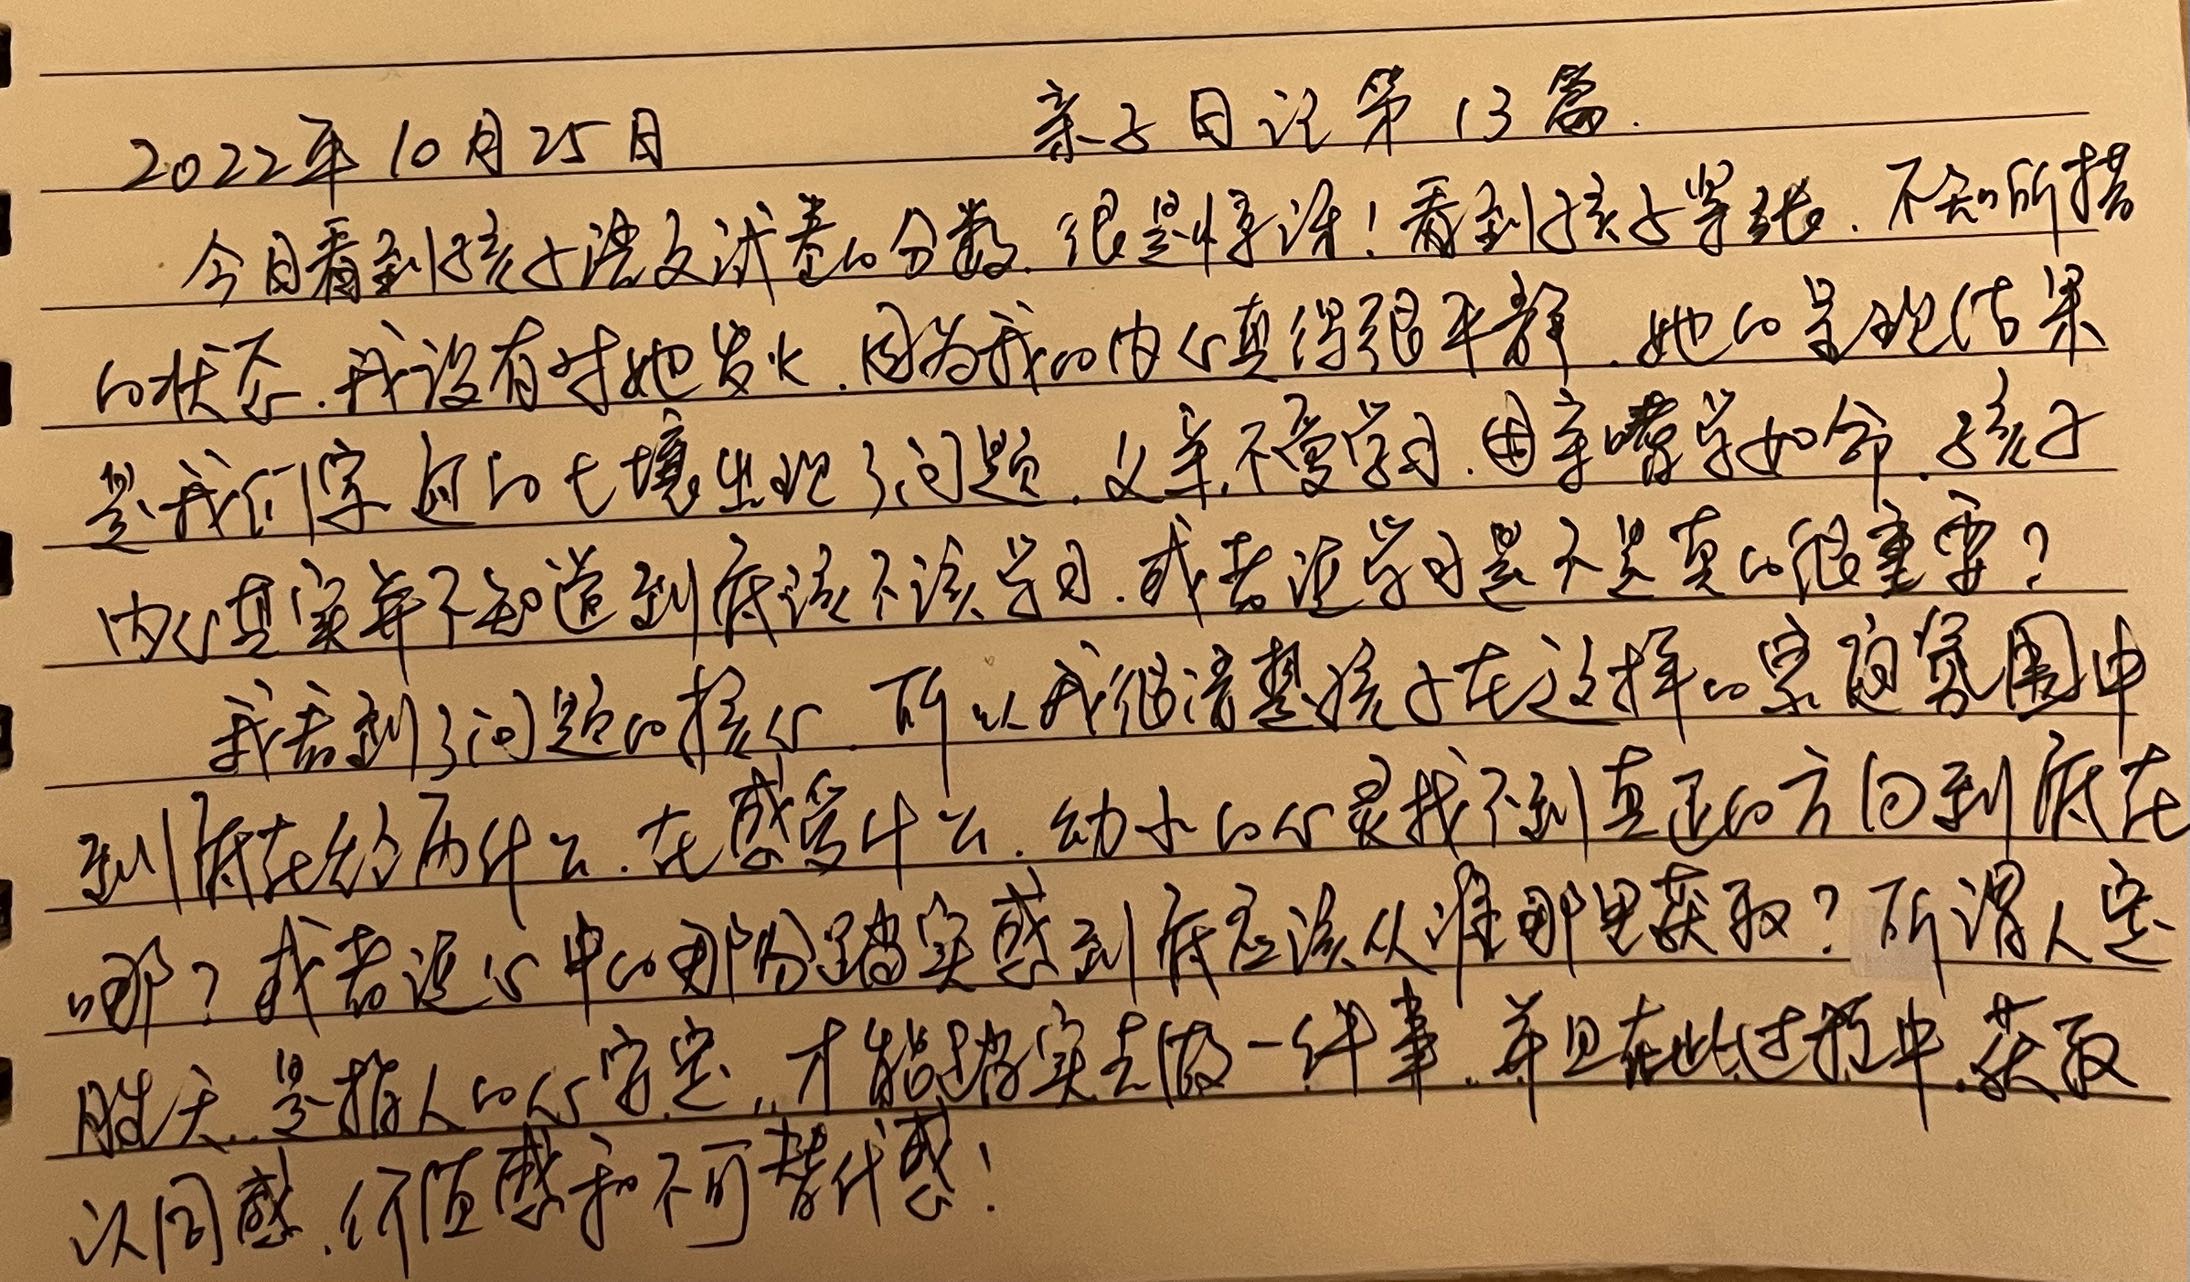 2022年10月25日 亲子日记第13篇.
今日看到孩子语文试卷的分数.很是惊讶!看到孩子紧张.不知所措
的状态.我没有对她发火.因为我的内心真得很平静.她的呈现结果
是我们家庭的土壤出现了问题.父亲不爱学习.母亲嗜学如命.孩子
内心其实并不知道到底该不该学习.或者说学习是不是真的很重要?
我看到了问题的核心.所以我很清楚孩子在这样的家庭氛围中
到底在经历什么.在感受什么.幼小的心灵找不到真正的方向到底在
哪?或者说心中的那份踏实感到底应该从谁那里获取?所谓人定
胜天.是指人的心安定.才能踏实去做一件事.并且在此过程中.获取
认同感.价值感和不可替代感!